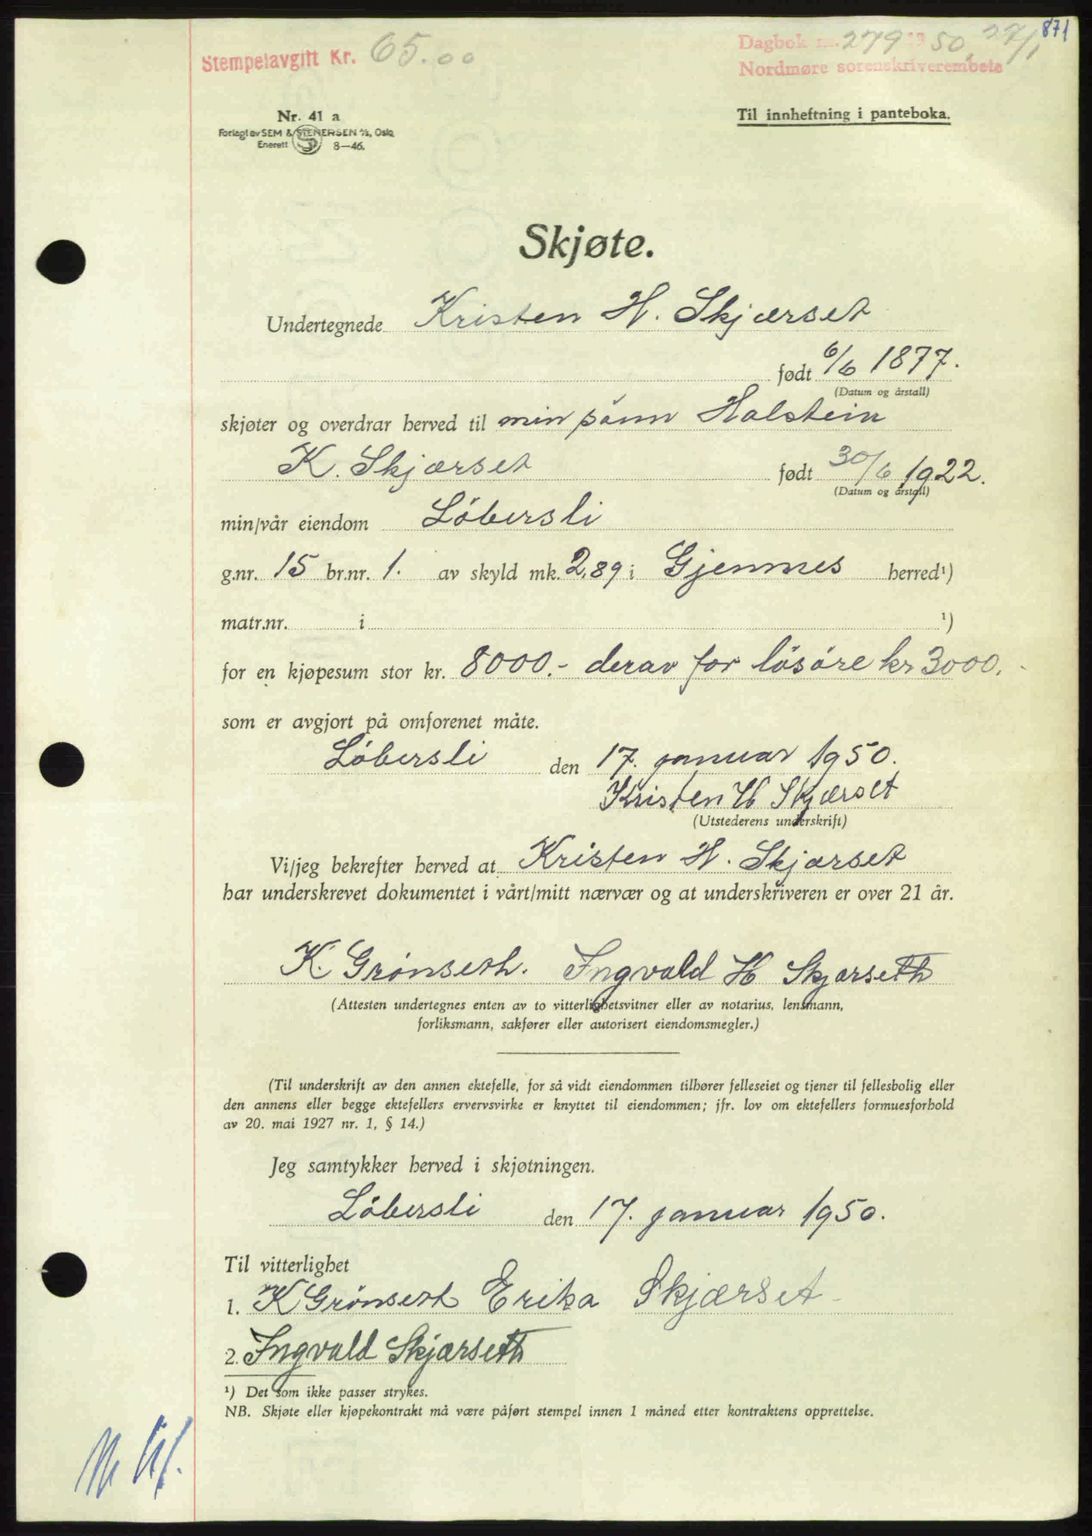 871
Stempelavgift Kr. 65.00
Dagbok nr. 279 1950, 27/1
Nordmøre sorenskriverembete
Nr. 41 a
Til innheftning i panteboka.
Forlagt av SEM & STENERSEN A/S, Oslo
Enerett 8—46.
Skjøte.
Undertegnede Kristen H. Skjærset
født 6/6 1877.
(Datum og årstall)
skjøter og overdrar herved til min sønn Halstein
K. Skjærset født 30/6 1922.
(Datum og årstall)
min/vår eiendom Löbersli
g.nr. 15 br.nr. 1. av skyld mk. 2,89 i Gjemnes herred¹)
matr.nr. i ¹)
for en kjøpesum stor kr. 8000.- derav for lösöre kr 3000.-
som er avgjort på omforenet måte.
Löbersli den 17. januar 1950.
Kristen H Skjærset
(Utstederens underskrift)
Vi/jeg bekrefter herved at Kristen H. Skjærset
har underskrevet dokumentet i vårt/mitt nærvær og at underskriveren er over 21 år.
K. Grönseth. Ingvald H Skjærseth
(Attesten undertegnes enten av to vitterlighetsvitner eller av notarius, lensmann,
forliksmann, sakfører eller autorisert eiendomsmegler.)
(Til underskrift av den annen ektefelle, for så vidt eiendommen tilhører felleseiet og tjener til fellesbolig eller
den annens eller begge ektefellers ervervsvirke er knyttet til eiendommen; jfr. lov om ektefellers formuesforhold
av 20. mai 1927 nr. 1, § 14.)
Jeg samtykker herved i skjøtningen.
Löbersli den 17. januar 1950.
Til vitterlighet
1. K Grönseth Erika Skjærset
2. Ingvald Skjærseth
¹) Det som ikke passer strykes.
NB. Skjøte eller kjøpekontrakt må være påført stempel innen 1 måned etter kontraktens opprettelse.